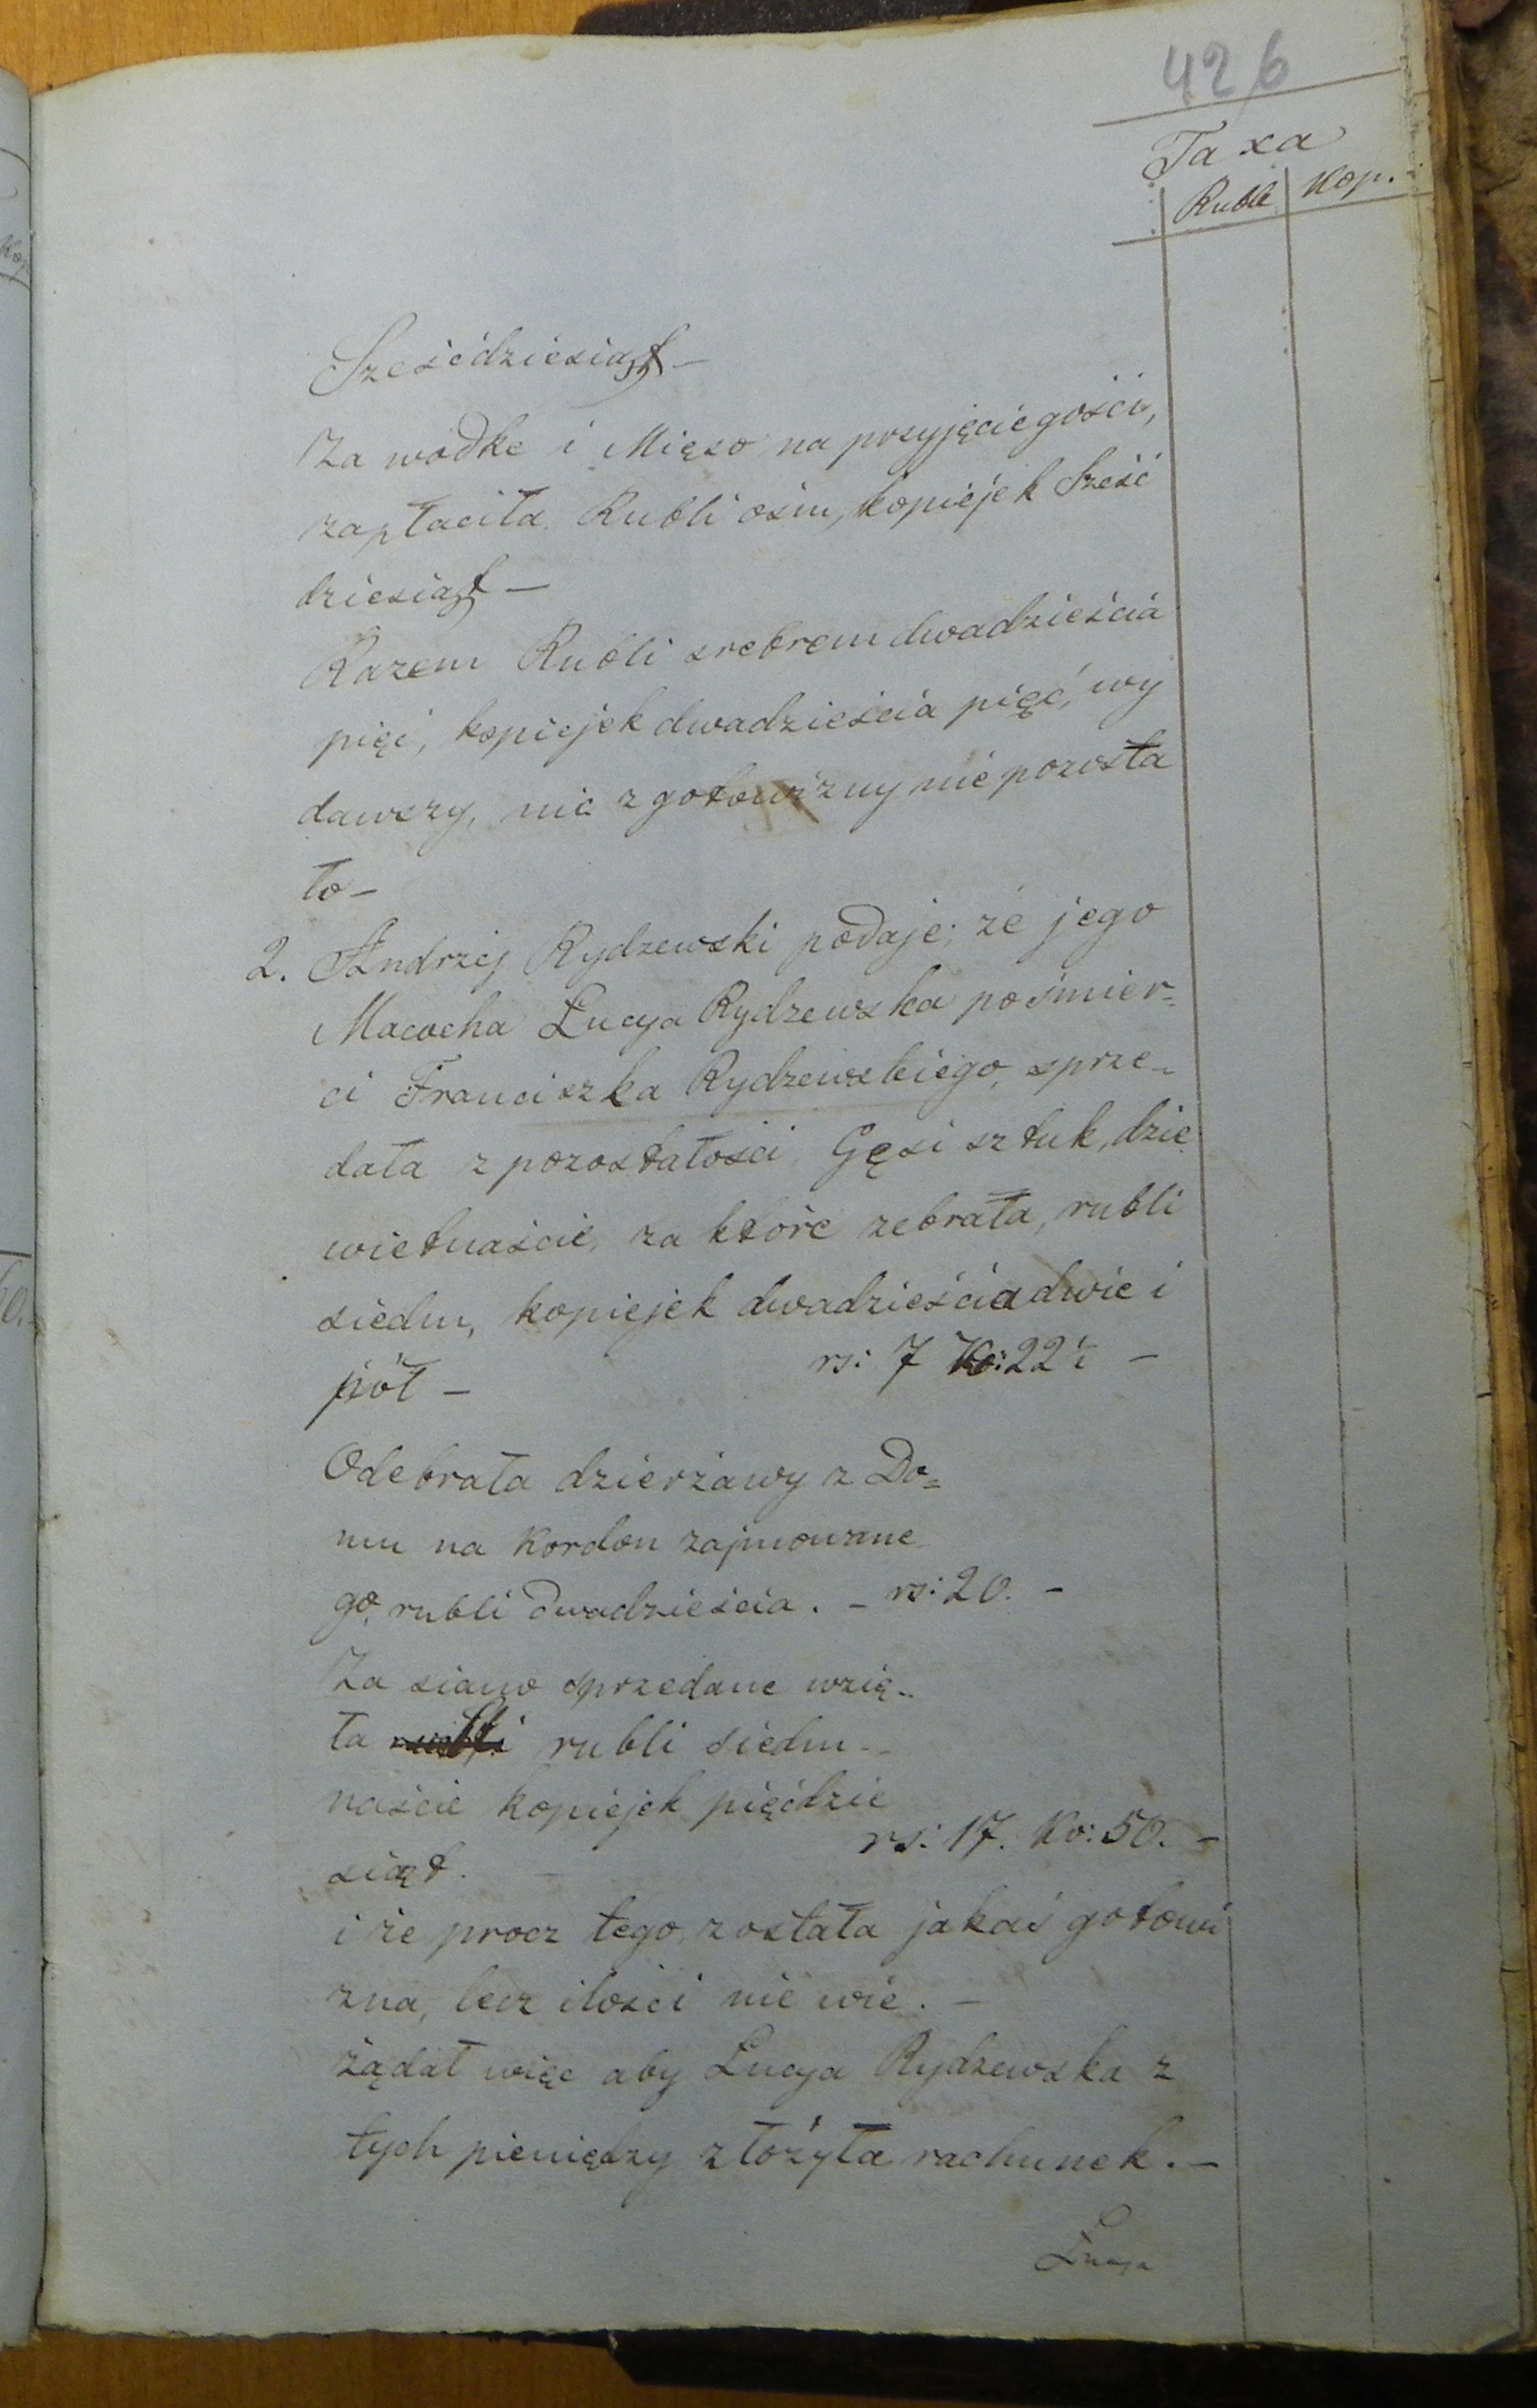 426
Taxa
Ruble Kop.
Sześćdziesiąt –
Za wodke i Mięso na przyjęcie gości,
zapłaciła Rubli ośm, kopiejek Sześć
dziesiąt –
Razem Rubli srebrem dwadzieścia
pięć, kopiejek dwadzieścia pięć, wy
dawszy, nic z gotowizny nie pozosta
ło –
2. Andrzej Rydzewski podaje; że jego
Macocha Lucya Rydzewska po śmier=
ci Franciszka Rydzewskiego, sprze-
dała z pozostałości Gęsi sztuk, dzie
wietnaście, za które zebrała, rubli
siedm, kopiejek dwadzieścia dwie i
pół – rs: 7 Ko: 22½ –
Odebrała dzierżawy z Do=
mu na Kordon zajmowane
go, rubli dwadzieścia. – rs: 20. –
Za siano sprzedane wzię-
ła rubli rubli siedm-
naście kopiejek pięćdzie
siąt. – rs: 17. Ko: 50. –
i że procz tego, została jakaś gotowi
zna, lecz ilości nie wie. –
żądał więc aby Lucya Rydzewska z
tych pieniędzy złożyła rachunek. –
Lucya